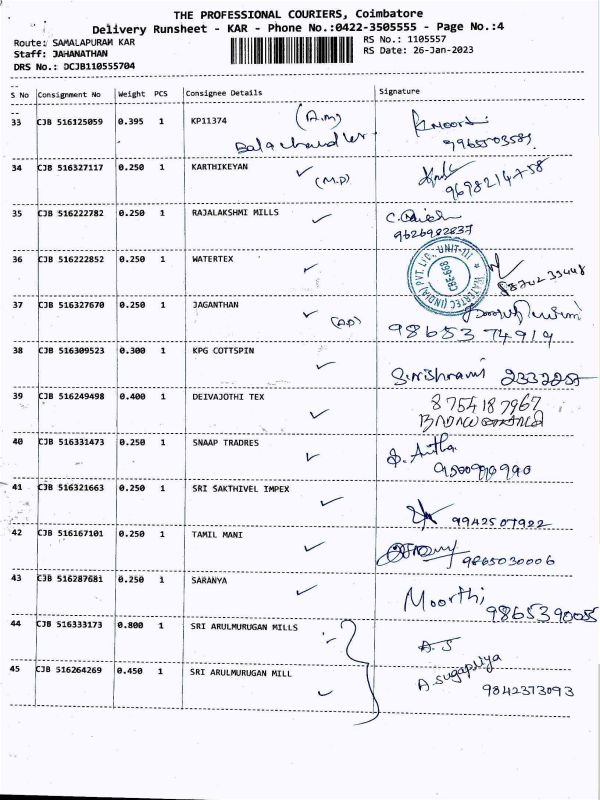 THE PROFESSIONAL COURIERS, Coimbatore
Delivery Runsheet - KAR - Phone No.:0422-3505555 - Page No.:4
Route: SAMALAPURAM KAR RS No.: 1105557
Staff: JAHANATHAN RS Date: 26-Jan-2023
DRS No.: DCJB110555704
S No Consignment No Weight PCS Consignee Details Signature
33 CJB 516125059 0.395 1 KP11374 (A.M)
Balachander 9965503585
34 CJB 516327117 0.250 1 KARTHIKEYAN
(M.D) 9698214758
35 CJB 516222782 0.250 1 RAJALAKSHMI MILLS
9626982837
36 CJB 516222852 0.250 1 WATERTEX
WATERTEC (INDIA) PVT. LTD., UNIT-III
CBE-658
37 CJB 516327670 0.250 1 JAGANTHAN
98653 74914
38 CJB 516309523 0.300 1 KPG COTTSPIN
2332257
39 CJB 516249498 0.400 1 DEIVAJOTHI TEX 8754187967
40 CJB 516331473 0.250 1 SNAAP TRADRES
9500990990
41 CJB 516321663 0.250 1 SRI SAKTHIVEL IMPEX
9942507922
42 CJB 516167101 0.250 1 TAMIL MANI
9865030006
43 CJB 516287681 0.250 1 SARANYA Moorthi
9865390055
44 CJB 516333173 0.800 1 SRI ARULMURUGAN MILLS
A.S
45 CJB 516264269 0.450 1 SRI ARULMURUGAN MILL A sugapriya
9842373093